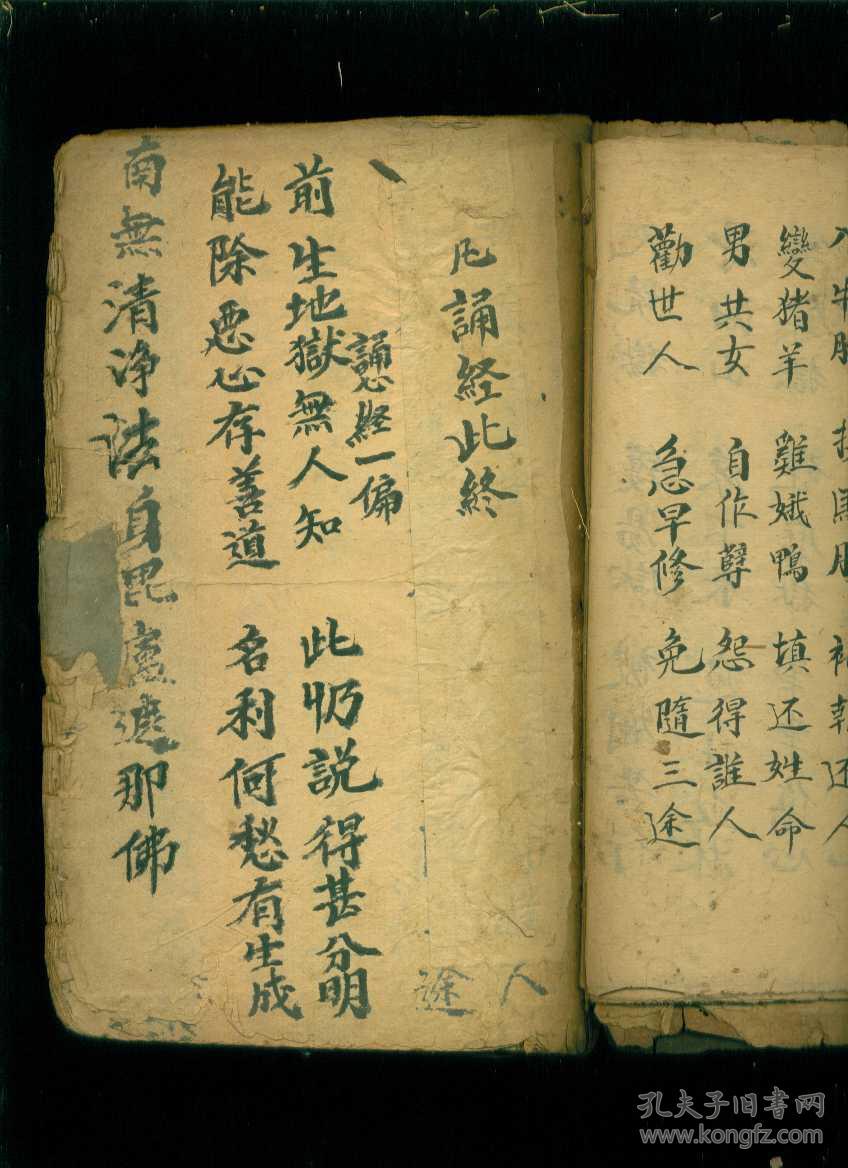 變猪羊 雞娥鴨 填还姓命
男共女 自作孽 怨得誰人
勸世人 急早修 免隨三途
誦経此終
人
途
経一偏
前生地獄無人知 此仍説得甚分明
能除悪心存善道 名利何愁有生成
南無清浄法自毘盧遮那佛
孔夫子旧書网
www.kongfz.com